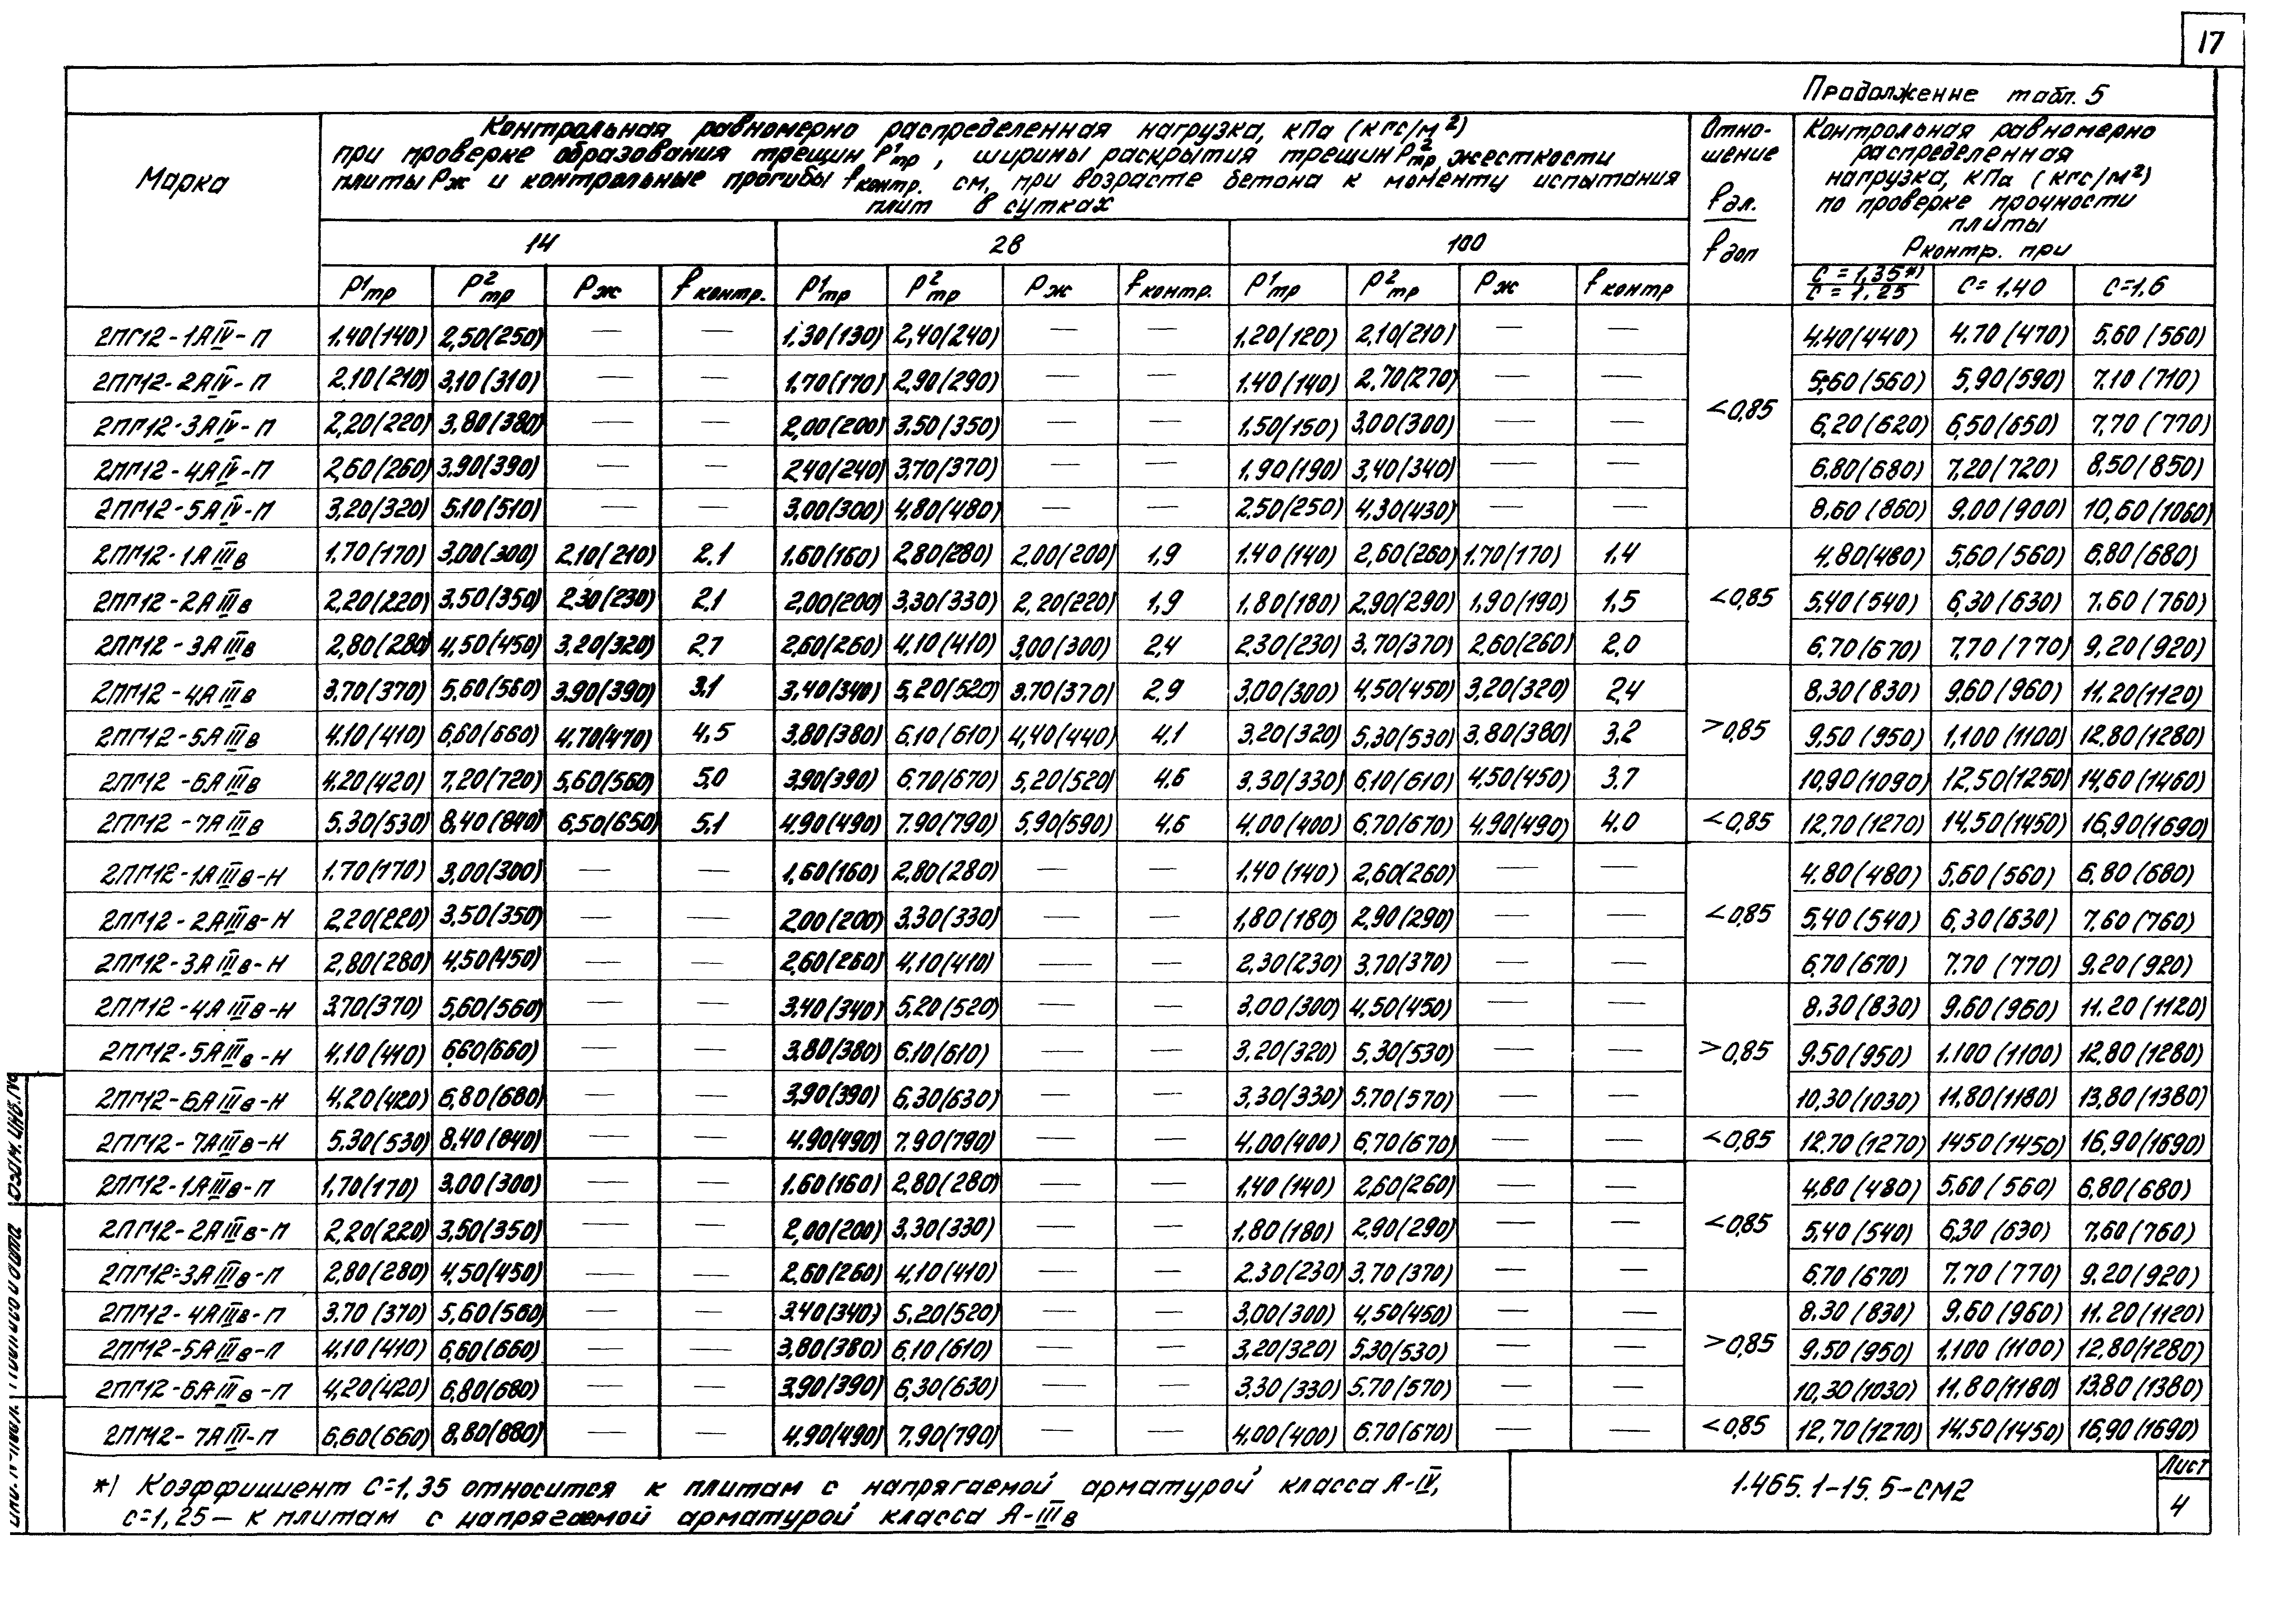 17
Продолжение табл. 5
Марка
Контрольная равномерно распределенная нагрузка, кПа (кгс/м²)
при проверке образования трещин P¹тр, ширины раскрытия трещин P²тр, жесткости
плиты Pж и контрольные прогибы fконтр. см, при возрасте бетона к моменту испытания
плит в сутках
Отно-
шение
fдл.
fдоп
Контрольная равномерно
распределенная
нагрузка, кПа (кгс/м²)
по проверке прочности
плиты
Pконтр. при
14 28 100
P¹тр P²тр Pж fконтр. P¹тр P²тр Pж fконтр. P¹тр P²тр Pж fконтр C=1,35*) C=1,40 C=1,6
C=1,25
2ПГ12-1АIV-П 1,40(140) 2,50(250) — — 1,30(130) 2,40(240) — — 1,20(120) 2,10(210) — — 4,40(440) 4,70(470) 5,60(560)
2ПГ12-2АIV-П 2,10(210) 3,10(310) — — 1,70(170) 2,90(290) — — 1,40(140) 2,70(270) — — 5,60(560) 5,90(590) 7,10(710)
2ПГ12-3АIV-П 2,20(220) 3,80(380) — — 2,00(200) 3,50(350) — — 1,50(150) 3,00(300) — — <0,85 6,20(620) 6,50(650) 7,70(770)
2ПГ12-4АIV-П 2,60(260) 3,90(390) — — 2,40(240) 3,70(370) — — 1,90(190) 3,40(340) — — 6,80(680) 7,20(720) 8,50(850)
2ПГ12-5АIV-П 3,20(320) 5,10(510) — — 3,00(300) 4,80(480) — — 2,50(250) 4,30(430) — — 8,60(860) 9,00(900) 10,60(1060)
2ПГ12-1АIIIв 1,70(170) 3,00(300) 2,10(210) 2,1 1,60(160) 2,80(280) 2,00(200) 1,9 1,40(140) 2,60(260) 1,70(170) 1,4 4,80(480) 5,60(560) 6,80(680)
2ПГ12-2АIIIв 2,20(220) 3,50(350) 2,30(230) 2,1 2,00(200) 3,30(330) 2,20(220) 1,9 1,80(180) 2,90(290) 1,90(190) 1,5 <0,85 5,40(540) 6,30(630) 7,60(760)
2ПГ12-3АIIIв 2,80(280) 4,50(450) 3,20(320) 2,7 2,60(260) 4,10(410) 3,00(300) 2,4 2,30(230) 3,70(370) 2,60(260) 2,0 6,70(670) 7,70(770) 9,20(920)
2ПГ12-4АIIIв 3,70(370) 5,60(560) 3,90(390) 3,1 3,40(340) 5,20(520) 3,70(370) 2,9 3,00(300) 4,50(450) 3,20(320) 2,4 8,30(830) 9,60(960) 11,20(1120)
2ПГ12-5АIIIв 4,10(410) 6,60(660) 4,70(470) 4,5 3,80(380) 6,10(610) 4,40(440) 4,1 3,20(320) 5,30(530) 3,80(380) 3,2 >0,85 9,50(950) 1,100(1100) 12,80(1280)
2ПГ12-6АIIIв 4,20(420) 7,20(720) 5,60(560) 5,0 3,90(390) 6,70(670) 5,20(520) 4,6 3,30(330) 6,10(610) 4,50(450) 3,7 10,90(1090) 12,50(1250) 14,60(1460)
2ПГ12-7АIIIв 5,30(530) 8,40(840) 6,50(650) 5,1 4,90(490) 7,90(790) 5,90(590) 4,6 4,00(400) 6,70(670) 4,90(490) 4,0 <0,85 12,70(1270) 14,50(1450) 16,90(1690)
2ПГ12-1АIIIв-Н 1,70(170) 3,00(300) — — 1,60(160) 2,80(280) — — 1,40(140) 2,60(260) — — 4,80(480) 5,60(560) 6,80(680)
2ПГ12-2АIIIв-Н 2,20(220) 3,50(350) — — 2,00(200) 3,30(330) — — 1,80(180) 2,90(290) — — <0,85 5,40(540) 6,30(630) 7,60(760)
2ПГ12-3АIIIв-Н 2,80(280) 4,50(450) — — 2,60(260) 4,10(410) — — 2,30(230) 3,70(370) — — 6,70(670) 7,70(770) 9,20(920)
2ПГ12-4АIIIв-Н 3,70(370) 5,60(560) — — 3,40(340) 5,20(520) — — 3,00(300) 4,50(450) — — 8,30(830) 9,60(960) 11,20(1120)
2ПГ12-5АIIIв-Н 4,10(410) 6,60(660) — — 3,80(380) 6,10(610) — — 3,20(320) 5,30(530) — — >0,85 9,50(950) 1,100(1100) 12,80(1280)
2ПГ12-6АIIIв-Н 4,20(420) 6,80(680) — — 3,90(390) 6,30(630) — — 3,30(330) 5,70(570) — — 10,30(1030) 11,80(1180) 13,80(1380)
2ПГ12-7АIIIв-Н 5,30(530) 8,40(840) — — 4,90(490) 7,90(790) — — 4,00(400) 6,70(670) — — <0,85 12,70(1270) 14,50(1450) 16,90(1690)
2ПГ12-1АIIIв-П 1,70(170) 3,00(300) — — 1,60(160) 2,80(280) — — 1,40(140) 2,60(260) — — 4,80(480) 5,60(560) 6,80(680)
2ПГ12-2АIIIв-П 2,20(220) 3,50(350) — — 2,00(200) 3,30(330) — — 1,80(180) 2,90(290) — — <0,85 5,40(540) 6,30(630) 7,60(760)
2ПГ12-3АIIIв-П 2,80(280) 4,50(450) — — 2,60(260) 4,10(410) — — 2,30(230) 3,70(370) — — 6,70(670) 7,70(770) 9,20(920)
2ПГ12-4АIIIв-П 3,70(370) 5,60(560) — — 3,40(340) 5,20(520) — — 3,00(300) 4,50(450) — — 8,30(830) 9,60(960) 11,20(1120)
2ПГ12-5АIIIв-П 4,10(410) 6,60(660) — — 3,80(380) 6,10(610) — — 3,20(320) 5,30(530) — — >0,85 9,50(950) 1,100(1100) 12,80(1280)
2ПГ12-6АIIIв-П 4,20(420) 6,80(680) — — 3,90(390) 6,30(630) — — 3,30(330) 5,70(570) — — 10,30(1030) 11,80(1180) 13,80(1380)
2ПГ12-7АIII-П 6,60(660) 8,80(880) — — 4,90(490) 7,90(790) — — 4,00(400) 6,70(670) — — <0,85 12,70(1270) 14,50(1450) 16,90(1690)
*) Коэффициент C=1,35 относится к плитам с напрягаемой арматурой класса А-IV,
c=1,25 — к плитам с напрягаемой арматурой класса А-IIIв
1.465.1-15.5-СМ2
Лист
4